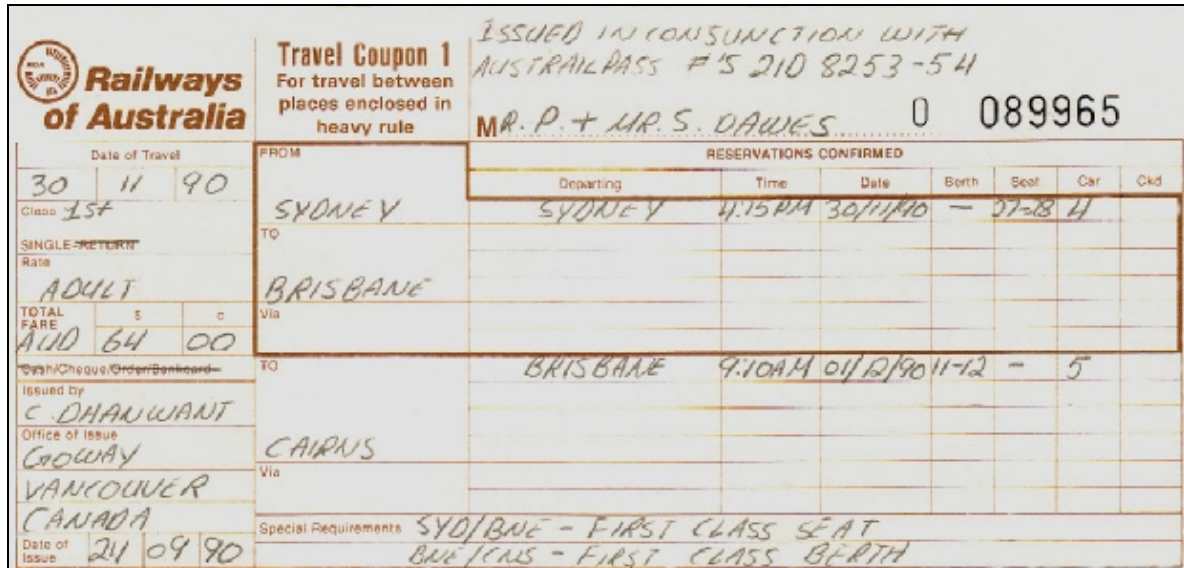 ISSUED IN CONJUNCTION WITH
AUSTRAILPASS #'S 210 8253-54
Railways
of Australia
Travel Coupon 1
For travel between
places enclosed in
heavy rule
MR. P. + MR. S. DAWES 0 089965
Date of Travel
30 11 90
Class 1St
SINGLE-RETURN
Rate
ADULT
TOTAL FARE $ c
AUD 64 00
Cash/Cheque/Order/Bankcard
Issued by
C. DHANWANT
Office of Issue
GOWAY
VANCOUVER
CANADA
Date of Issue 24 09 90
FROM
SYDNEY
TO
BRISBANE
Via
TO
CAIRNS
Via
RESERVATIONS CONFIRMED
Departing Time Date Berth Seat Car Ckd
SYDNEY 4:15PM 30/11/90 - 27-28 4
BRISBANE 9:10AM 01/12/90 11-12 - 5
Special Requirements SYD/BNE - FIRST CLASS SEAT
BNE/CNS - FIRST CLASS BERTH